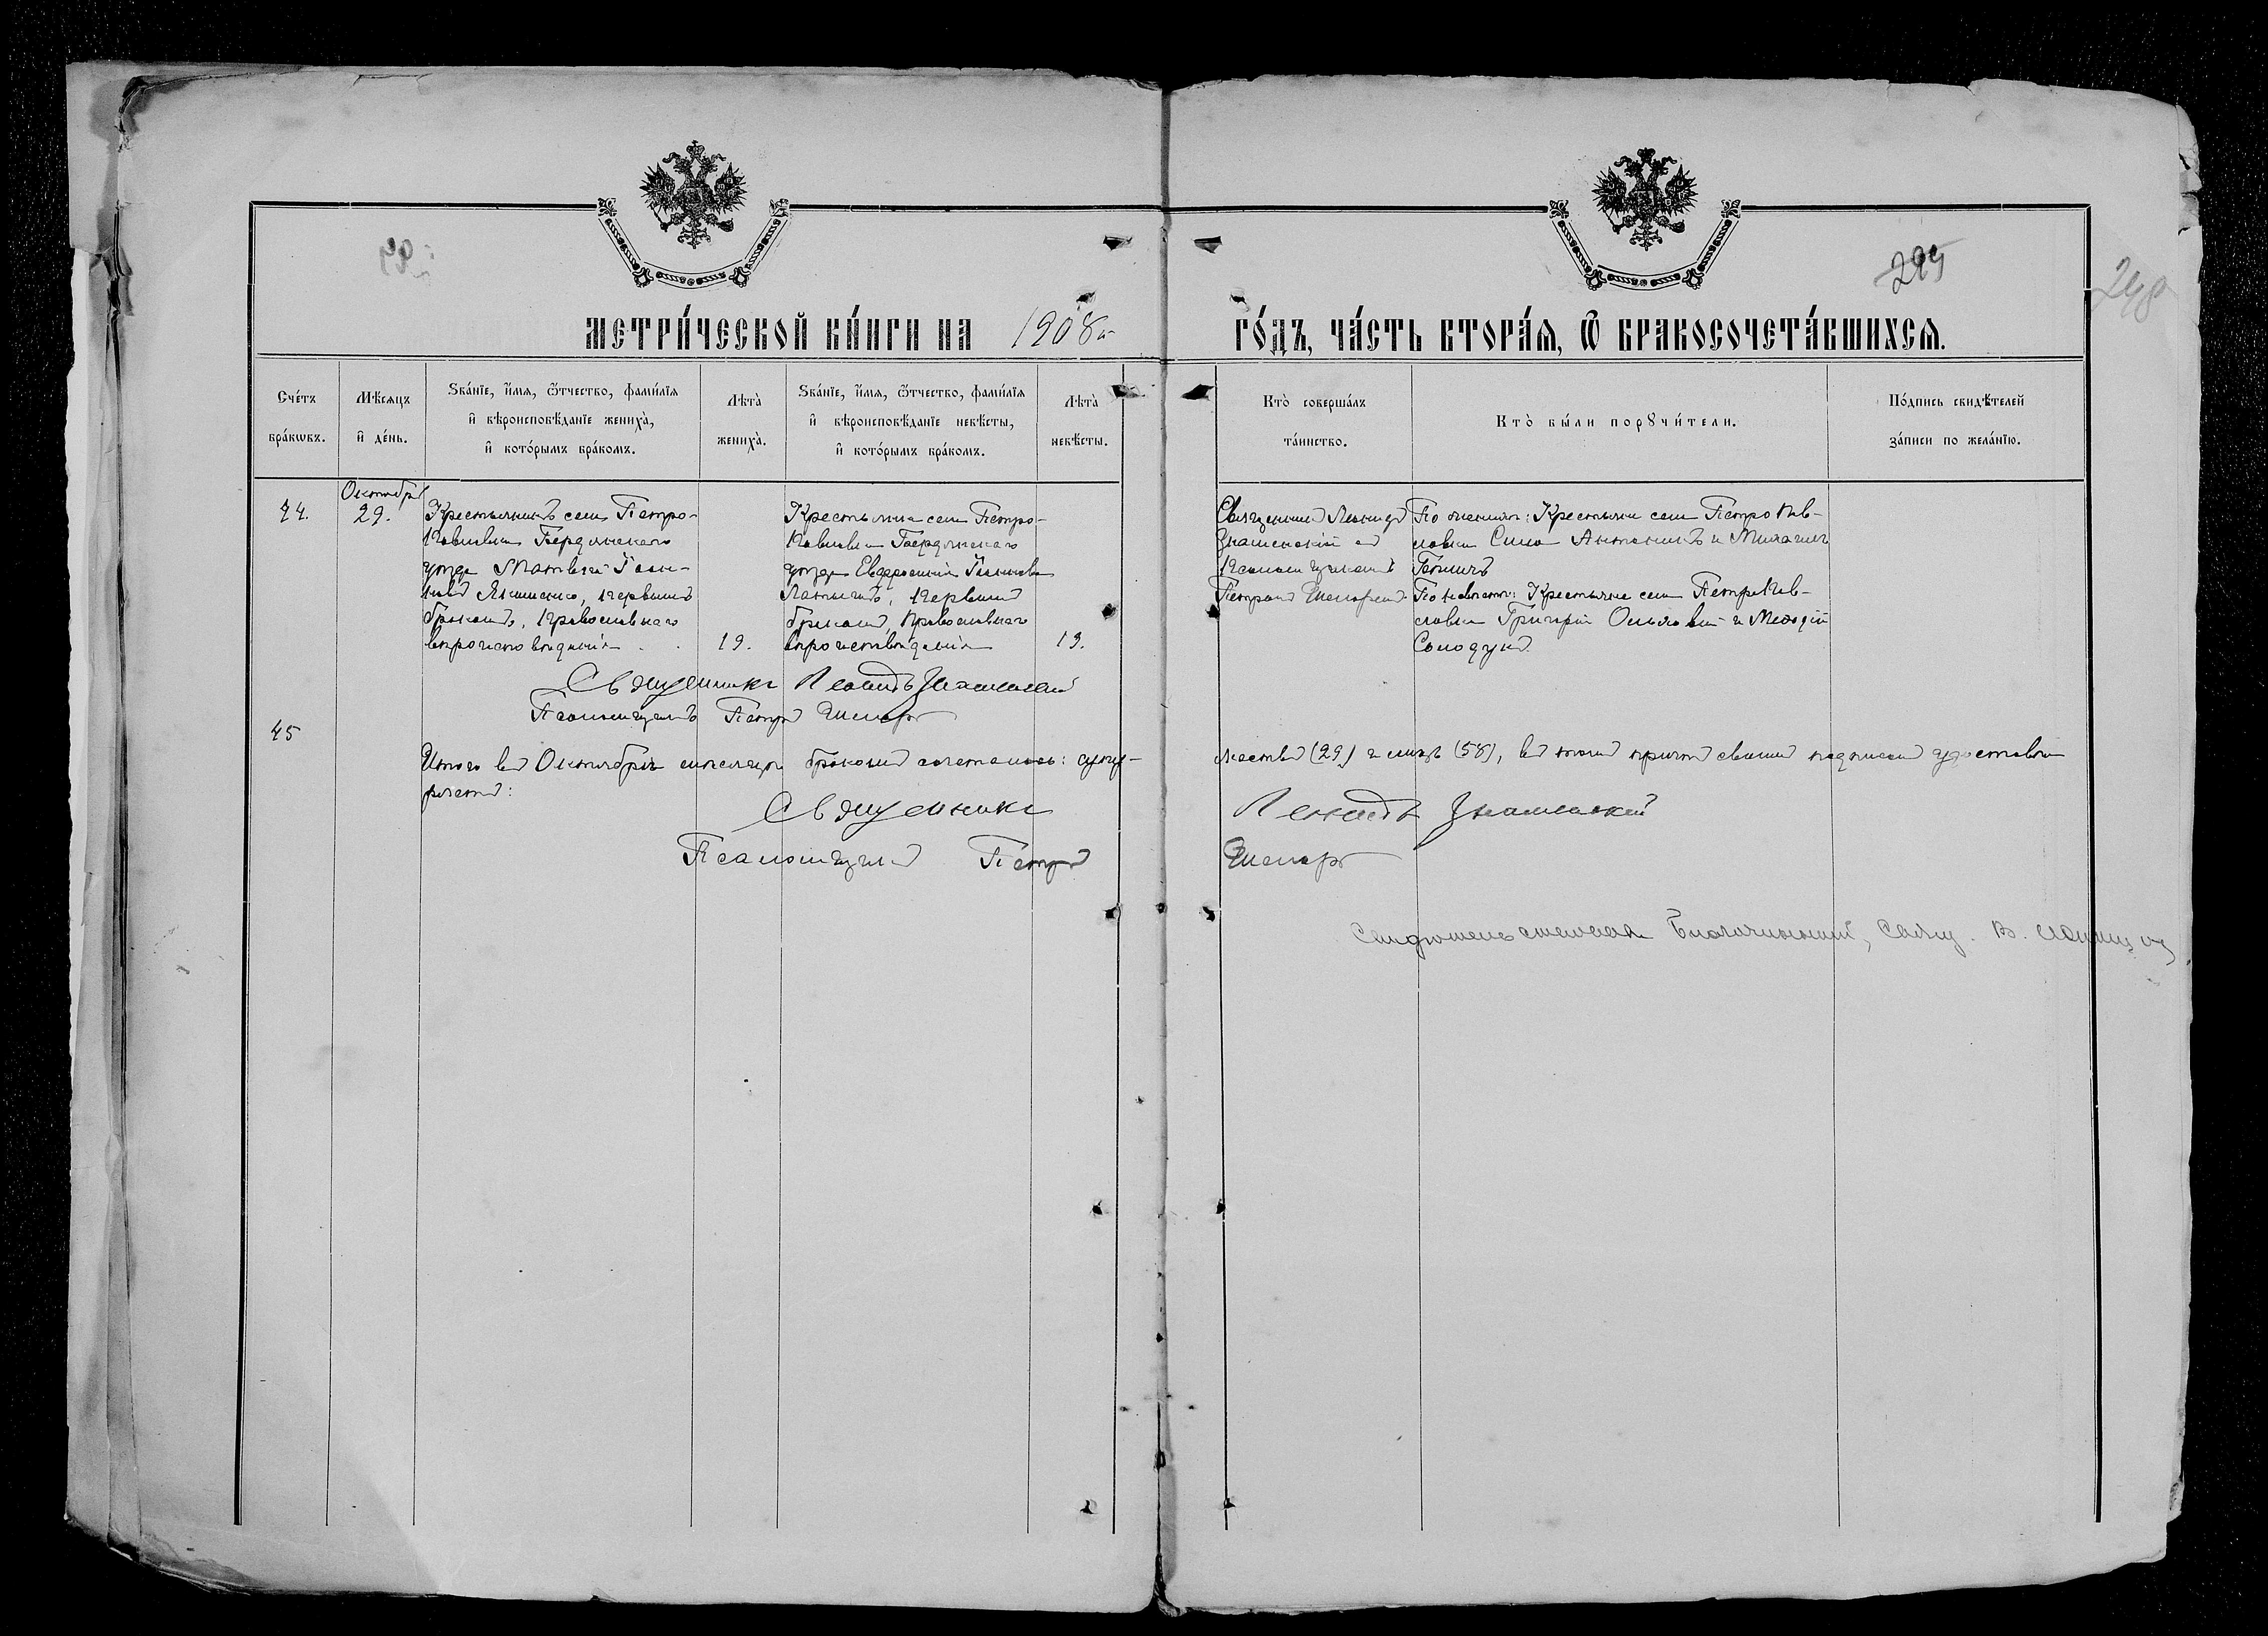 299
298
МЕТРИ́ЧЕСКОЙ КНИ́ГИ НА 1908й ГО́ДЪ, ЧА́СТЬ ВТОРА́Ѧ, Ѿ БРАКОСОЧЕТА́ВШИХСѦ.
Сче́тъ бра́кѡвъ.
Мѣ́сяцъ и҆ де́нь.
Ѕва́нїе, и҆́мѧ, ѻ҆́тчество, фами́лїѧ
и҆ вѣроисповѣ́данїе жениха̀,
и҆ кото́рымъ бра́комъ.
Лѣта̀ жениха̀.
Ѕва́нїе, и҆́мѧ, ѻ҆́тчество, фами́лїѧ
и҆ вѣроисповѣ́данїе невѣ́сты,
и҆ кото́рымъ бра́комъ.
Лѣта̀ невѣ́сты.
Кто̀ соверша́лъ та́инство.
Кто̀ бы́ли порꙋчи́тели.
По́дпись свидѣ́телей
за́писи по жела́нїю.
44.
Октября
29.
Крестьянинъ села Петро-
Павловки Бердянскаго
уѣзда Матвѣй
Якименко, первымъ
бракомъ, православнаго
вѣроисповѣданія
19.
Крестьянка села Петро-
Павловки Бердянскаго
уѣзда Евфросинія
первымъ
бракомъ, православнаго
вѣроисповѣданія
19.
Священникъ Леонидъ
Знаменскій съ
Псаломщикомъ
Петромъ
По женихѣ: Крестьяне села ПетроПав-
ловки Сила Антоникъ и Михаилъ
По невѣстѣ: Крестьяне села ПетроПав-
ловки Григорій и Меѳодій
Солодунъ
Священникъ Леонидъ Знаменскій
Псаломщикъ Петръ
45
Итого въ Октябрѣ мѣсяцѣ бракомъ сочеталось: супру-
жествъ (29) и лицъ (58), въ чемъ причтъ своимъ подписомъ удостовѣ-
ряетъ:
Священникъ Леонидъ Знаменскій
Псаломщикъ Петръ
Благочинный, Свящ. В.